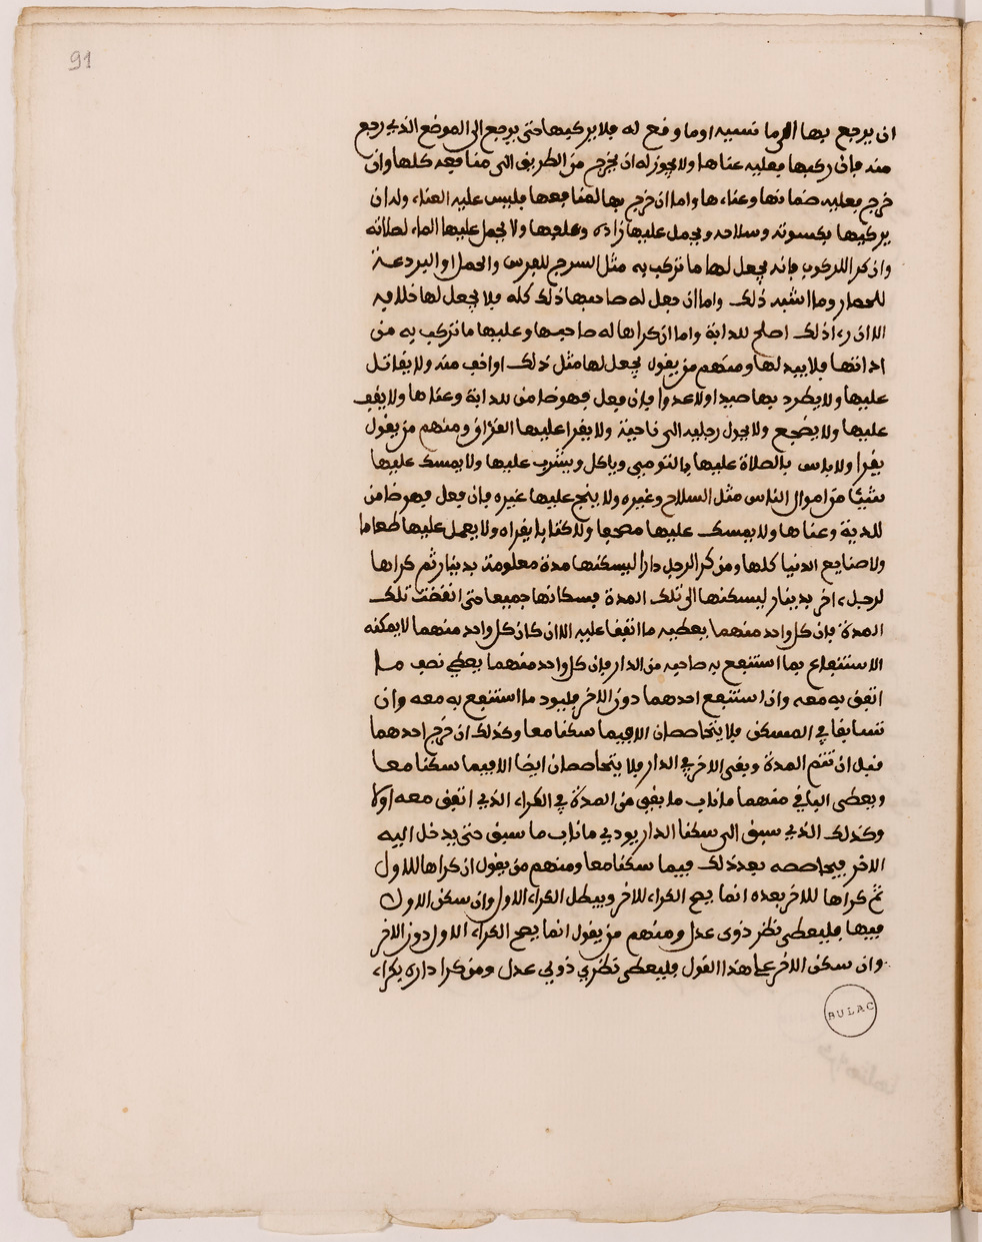 91
ان يرجع بها الى ما نسيه اوما وقع له فلا يركبها حتى يرجع الى الموضع الذي رجع
منه فان ركبها فعليه عناها ولا يجوز له ان يخرج من الطريق الى منافعه كلها وان
خرج فعليه ضمانها وعناءها واما ان خرج بها لمنافعها فليس عليه العناء وله ان
يركبها بكسوته وسلاحه ويحمل عليها زاده وعلفها ولا يحمل عليها الماء لصلاته
وان كرا للركوب فانه يجعل لها ما تركب به مثل السرج للفرس والحمل او البردعة
للحمار وما اشبه ذلك واما ان جعل له صاحبها ذلك كله فلا يجعل لها خلافه
الا ان رءا ذلك اصلح للدابة واما ان كراها له صاحبها وعليها ما تركب به من
اداتها فلا يبدلها ومنهم من يقول يجعل لها مثل ذلك او اخف منه ولا يقاتل
عليها ولا يطرد بها صيدا ولا عدوا فان فعل فهو ضامن للدابة وعناها ولا يقف
عليها ولا يضجع ولا يحول رجليه الى ناحية ولا يقرا عليها القرءان ومنهم من يقول
يقرا ولا باس بالصلاة عليها بالتومي وياكل ويشرب عليها ولا يمسك عليها
شيئا من اموال الناس مثل السلاح وغيره ولا ينج عليها غيره فان فعل فهو ضامن
للدية وعناها ولا يمسك عليها مصحفا ولا كتابا يقراه ولا يعمل عليها طعاما
ولا صنايع الدنيا كلها ومن كرا لرجل دارا ليسكنها مدة معلومة بدينار ثم كراها
لرجل ءاخر بدينار ليسكنها الى تلك المدة فسكاناها جميعا حتى انقضت تلك
المدة فان كل واحد منهما يعطيه ما اتفقا عليه الا ان كان كل واحد منهما لا يمكنه
الاستنفاع بما استنفع به صاحبه من الدار فان كل واحد منهما يعطي نصف ما
اتفق به معه وان استنفع احدهما دون الاخر فليود ما استنفع به معه وان
تسابقا في المسكن فلا يتحاصصان الا فيما سكنا معا وكذلك ان خرج احدهما
قبل ان تتم المدة وبقى الاخر في الدار فلا يتحاصصان ايضا الا فيما سكنا معا
ويعطى الباقي منهما ما ناب ما بقى من المدة في الكراء الذي اتفق معه اولا
وكذلك الذي سبق الى سكنا الدار يودي ما ناب ما سبق حتى يدخل اليه
الاخر فيحاصصه بعد ذلك فيما سكنا معا ومنهم من يقول ان كراها للاول
ثم كراها للاخر بعده انما يصح الكراء للاخر ويبطل الكراء الاول وان سكن الاول
فيها فليعطى نظر ذوى عدل ومنهم من يقول انما يصح الكراء الاول دون الاخر
وان سكن الاخر على هذا القول فليعطى نظري ذوي عدل ومن كرا داره بكراء
BULAC